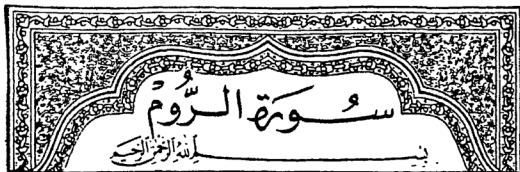 سُورَةُ الرُّومِ
بِسْمِ اللَّهِ الرَّحْمَٰنِ الرَّحِيمِ